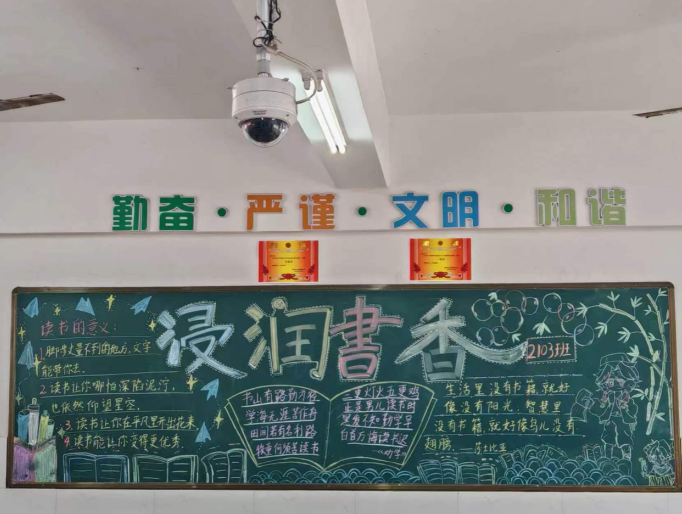 勤奋·严谨·文明·和谐
浸润书香
2103班
读书的意义:
1.脚步丈量不到的地方,文字
能带你去.
2.读书让你哪怕深陷泥泞,
也依然仰望星空.
3.读书让你在平凡里开出花来
4.读书能让你变得更优秀.
书山有路勤为径
学海无涯苦作舟
田间若有名利路
三更灯火五更鸡
正是男儿读书时
黑发不知勤学早
白首方悔读书迟
生活里没有书籍,就好
像没有阳光,智慧里
没有书籍,就好像鸟儿没有
翅膀 ——莎士比亚